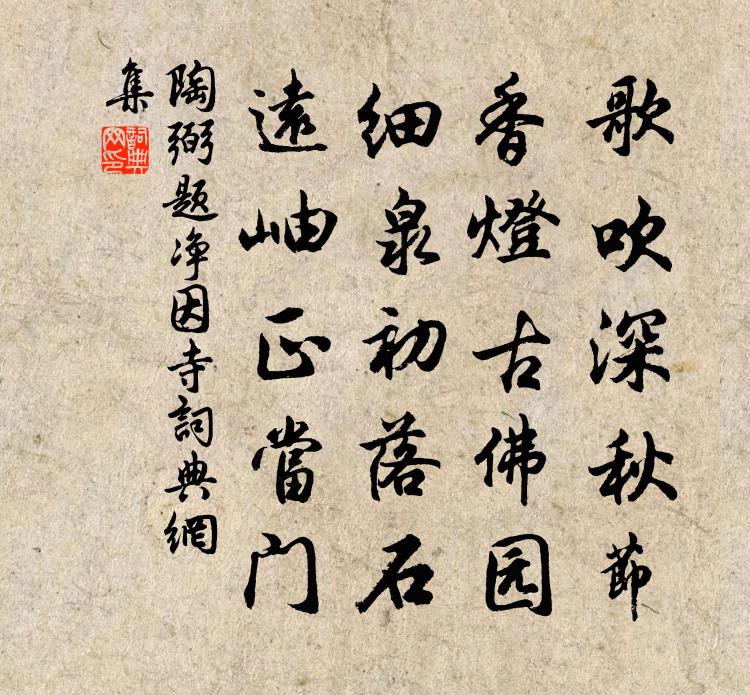 歌吹深秋節
香燈古佛园
細泉初落石
遠岫正當門
陶弼题净因寺詞典網
集
詞典
网印